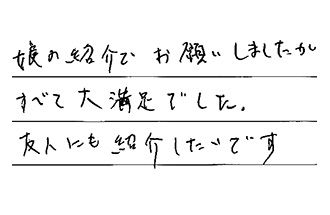 娘の紹介でお願いしましたが
すべて大満足でした。
友人にも紹介したいです